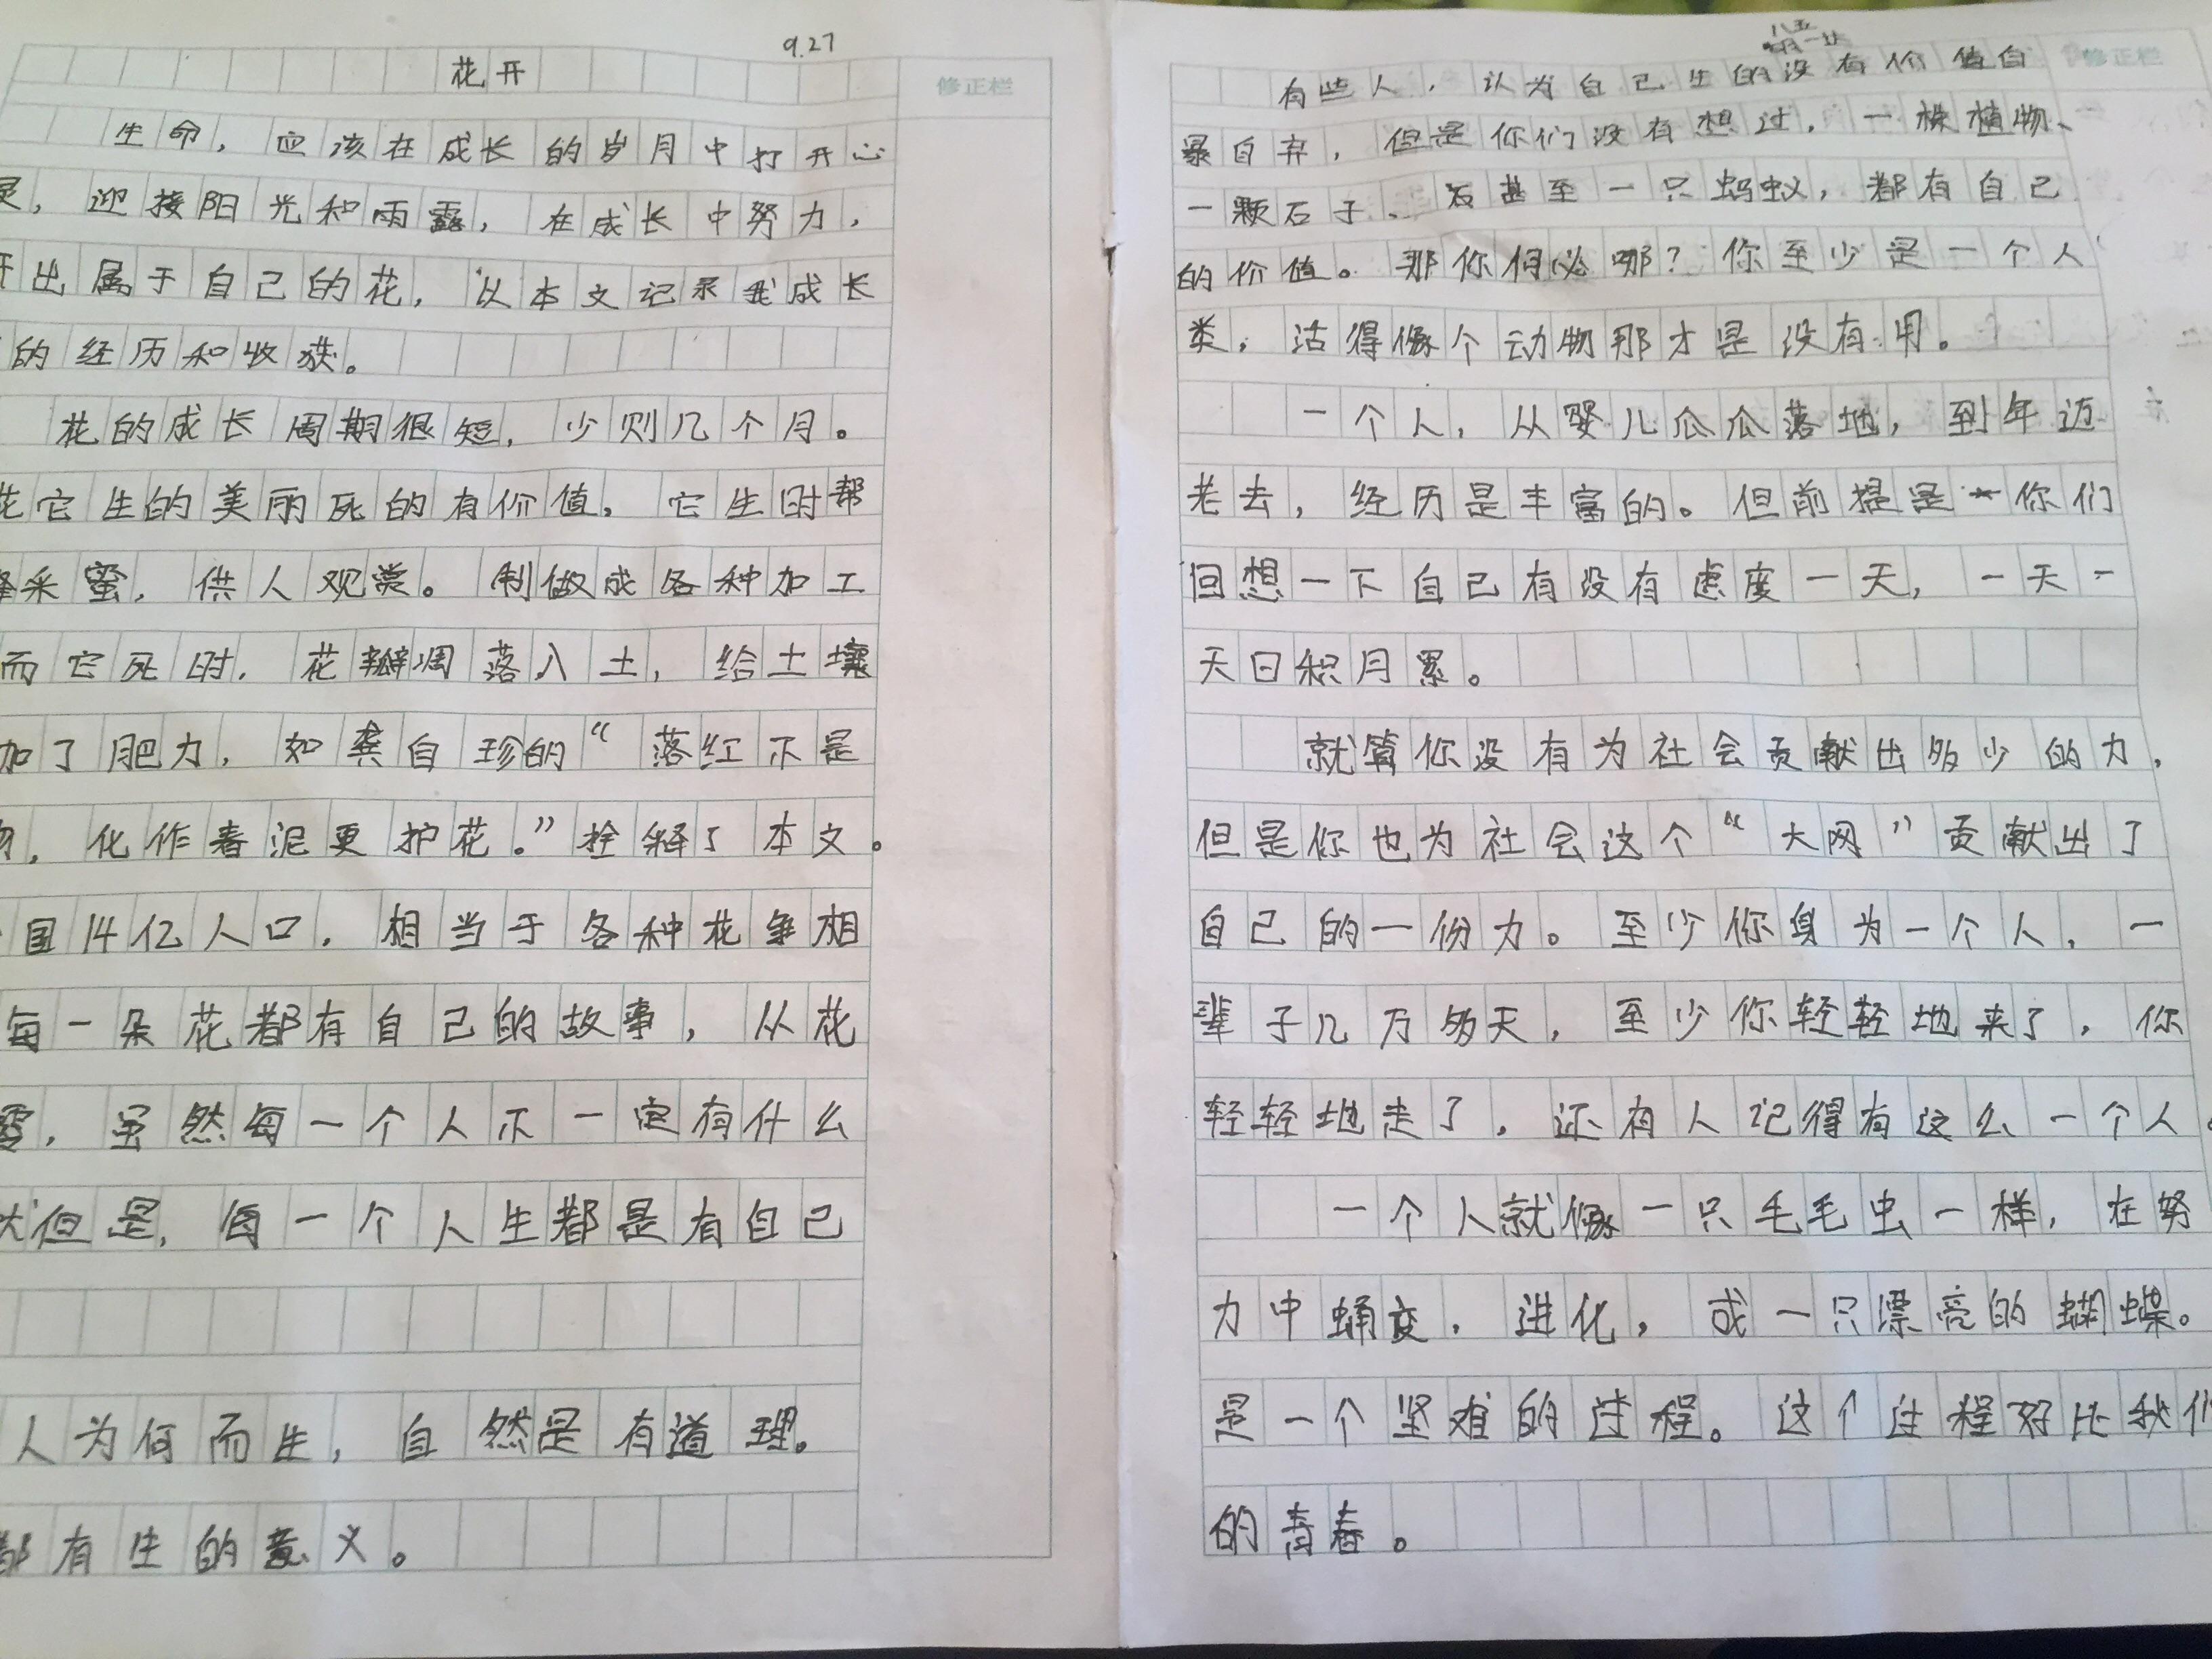 9.27
花开
修正栏
生命，应该在成长的岁月中打开心
灵，迎接阳光和雨露，在成长中努力，
开出属于自己的花，以本文记录我成长
的经历和收获。
花的成长周期很短，少则几个月。
花它生的美丽死的有价值。它生时帮
采蜜，供人观赏。制做成各种加工
而它死时，花瓣凋落入土，给土壤
加了肥力，如龚自珍的“落红不是
，化作春泥更护花。”拴释了本文。
国14亿人口，相当于各种花争相
每一朵花都有自己的故事，从花
，虽然每一个人不一定有什么
但是，每一个人生都是有自己
人为何而生，自然是有道理。
都有生的意义。
修正栏
有些人，认为自己生的没有价值自
暴自弃，但是你们没有想过，一株植物、
一颗石子、甚至一只蚂蚁，都有自己
的价值。那你何必哪？你至少是一个人
类，活得像个动物那才是没有用。
一个人，从婴儿瓜瓜落地，到年迈
老去，经历是丰富的。但前提是你们
回想一下自己有没有虚度一天，一天一
天日积月累。
就算你没有为社会贡献出多少的力，
但是你也为社会这个“大网”贡献出了
自己的一份力。至少你身为一个人，一
辈子几万多天，至少你轻轻地来了，你
轻轻地走了，还有人记得有这么一个人。
一个人就像一只毛毛虫一样，在努
力中蛹变，进化，成一只漂亮的蝴蝶。
是一个坚难的过程。这个过程好比我们
的青春。